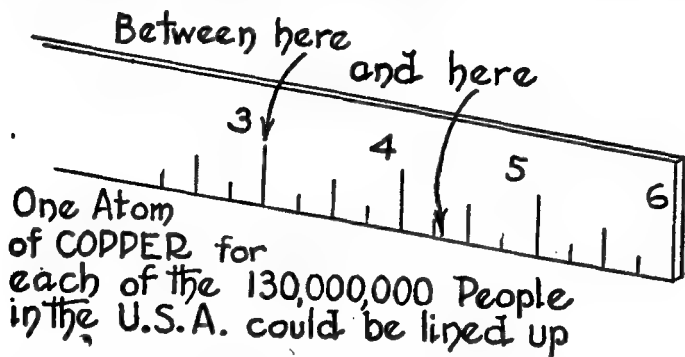 Between here
and here
3
4
5
6
One Atom
of COPPER for
each of the 130,000,000 People
in the U.S.A. could be lined up